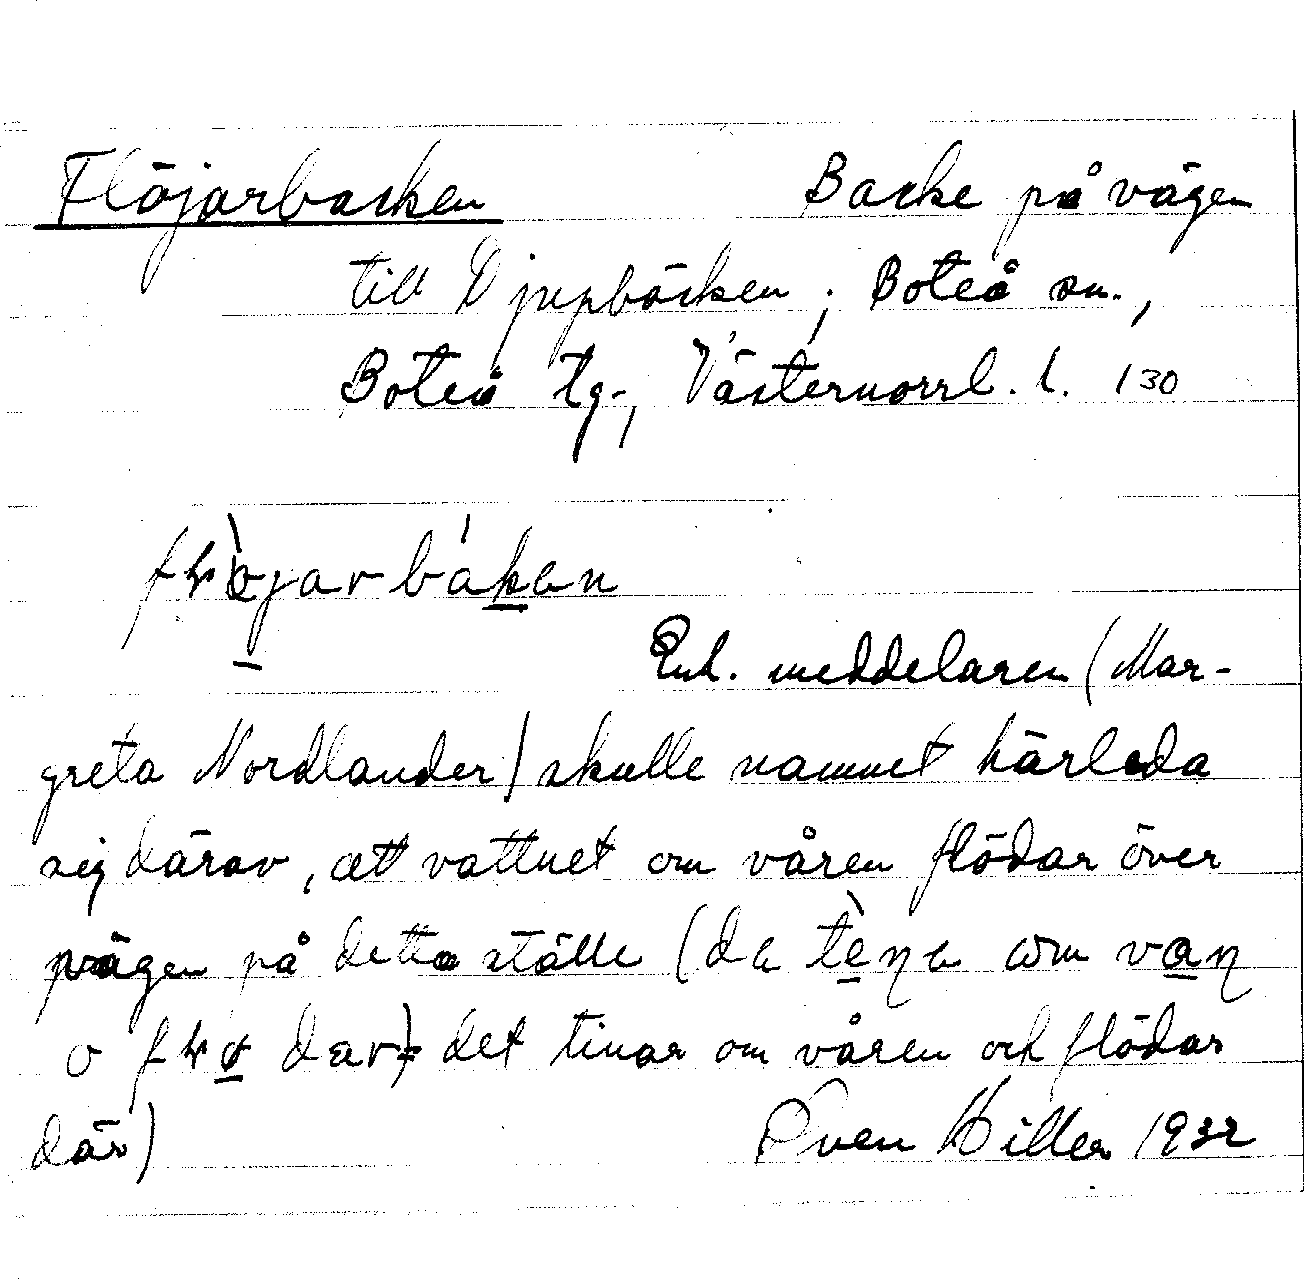 Flöjarbacken Backe på vägen
till Djupbäcken; Boteå sn.,
Boteå tg., Västernorrl. l. 130
Enl. meddelaren (Mar-
greta Nordlander) skulle namnet härleda
sig därav, att vattnet om våren flödar över
vägen på detta ställe (
det tinar om våren och flödar
där) Sven Hiller 1932